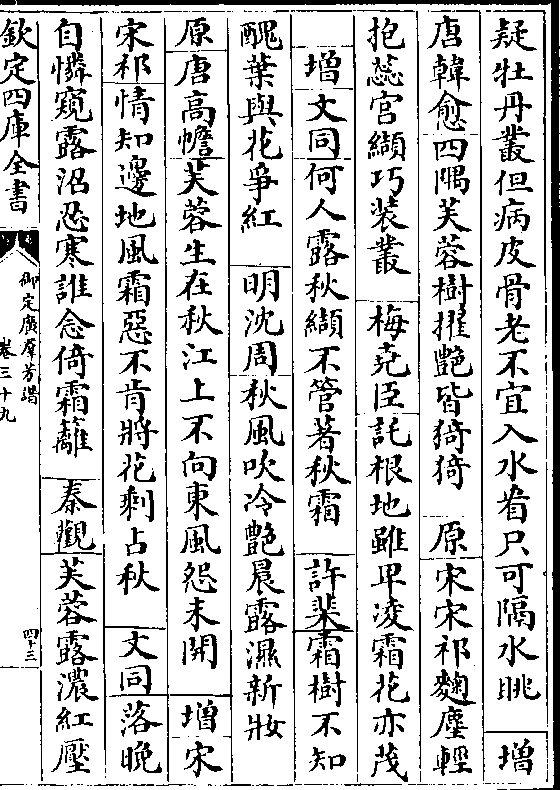 疑牡丹叢但病皮骨老不宜入水看只可隔水眺　增
唐韓愈四隅芙蓉樹擢艷皆猗猗　原宋宋祁麴塵輕
抱蕊宫纈巧装叢　梅堯臣託根地雖卑凌霜花亦茂
增文同何人露秋纈不管著秋霜　許棐霜樹不知
醜葉與花爭紅　明沈周秋風吹冷艷晨露濕新妝
原唐高蟾芙蓉生在秋江上不向東風怨未開　增宋
宋祁情知邊地風霜惡不肯將花剩占秋　文同落晚
自憐窺露沼忍寒誰念倚霜籬　秦觀芙蓉露濃紅壓
欽定四庫全書
御定廣羣芳譜
卷三十九
四十三